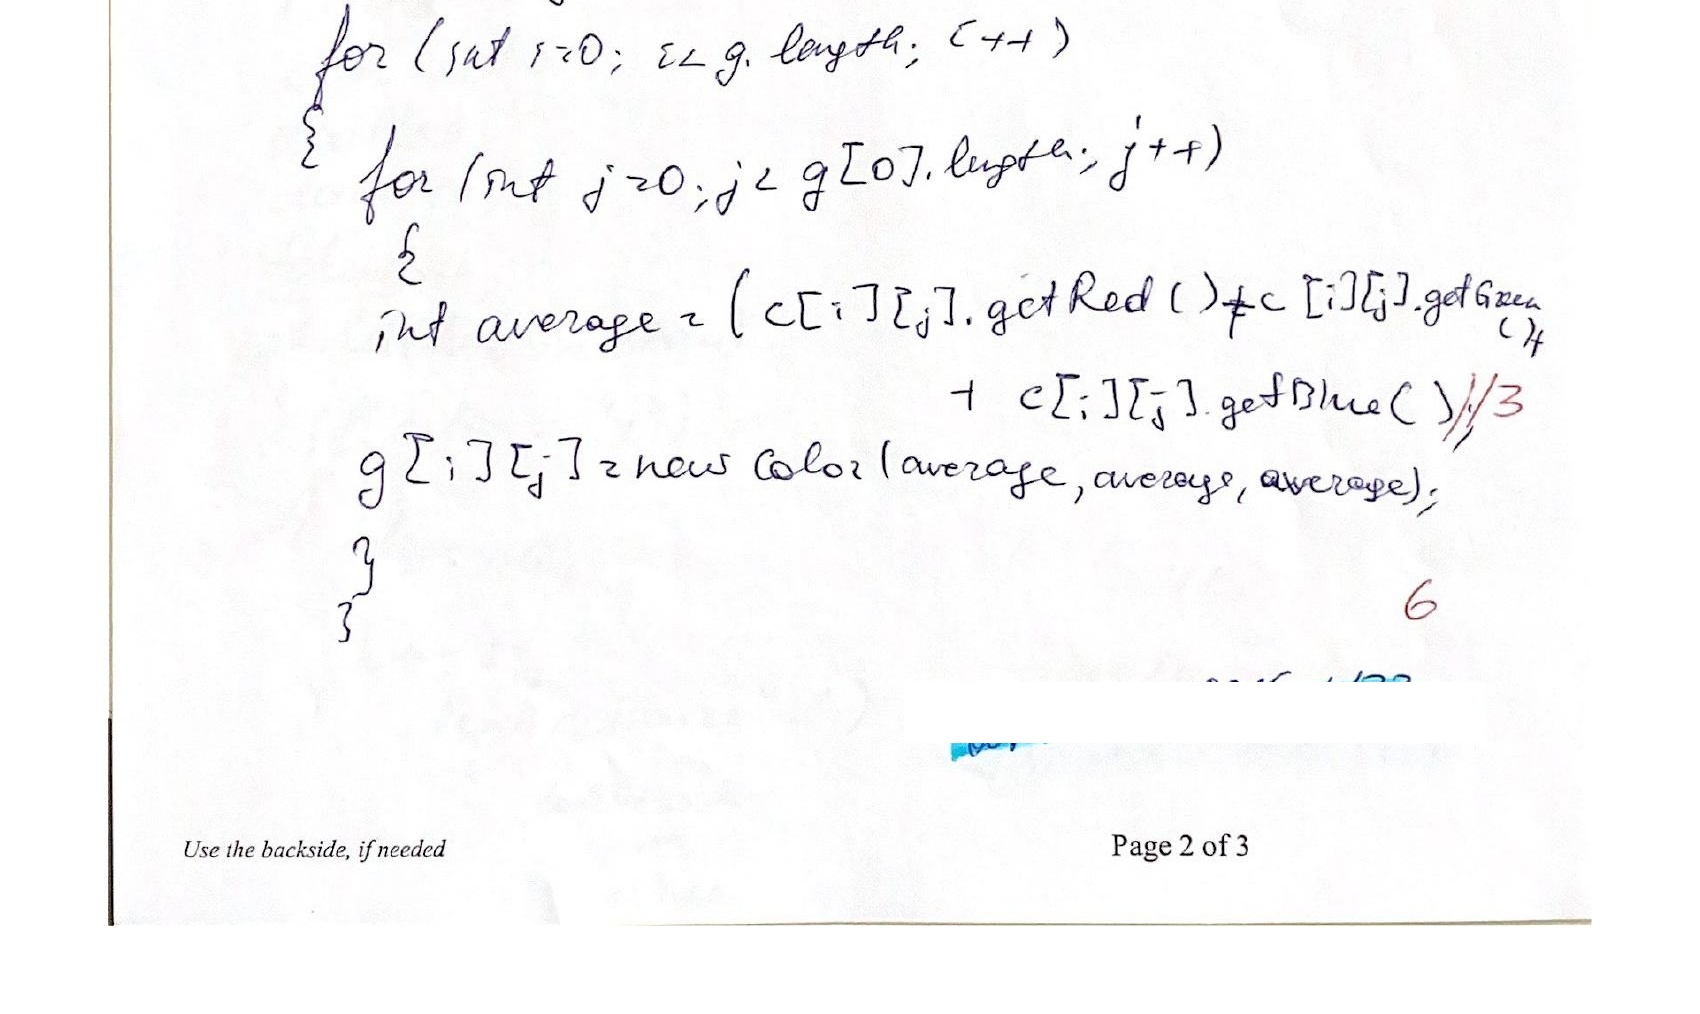 for (int i=0; i< g. length; i++)
{
for (int j=0; j< g[0]. length; j++)
{
int average = (c[i][j]. getRed () + c [i][j]. getGreen
() +
+ c[i][j]. getBlue( )) /3
g[i][j] = new Color (average, average, average);
}
}
6
Use the backside, if needed
Page 2 of 3